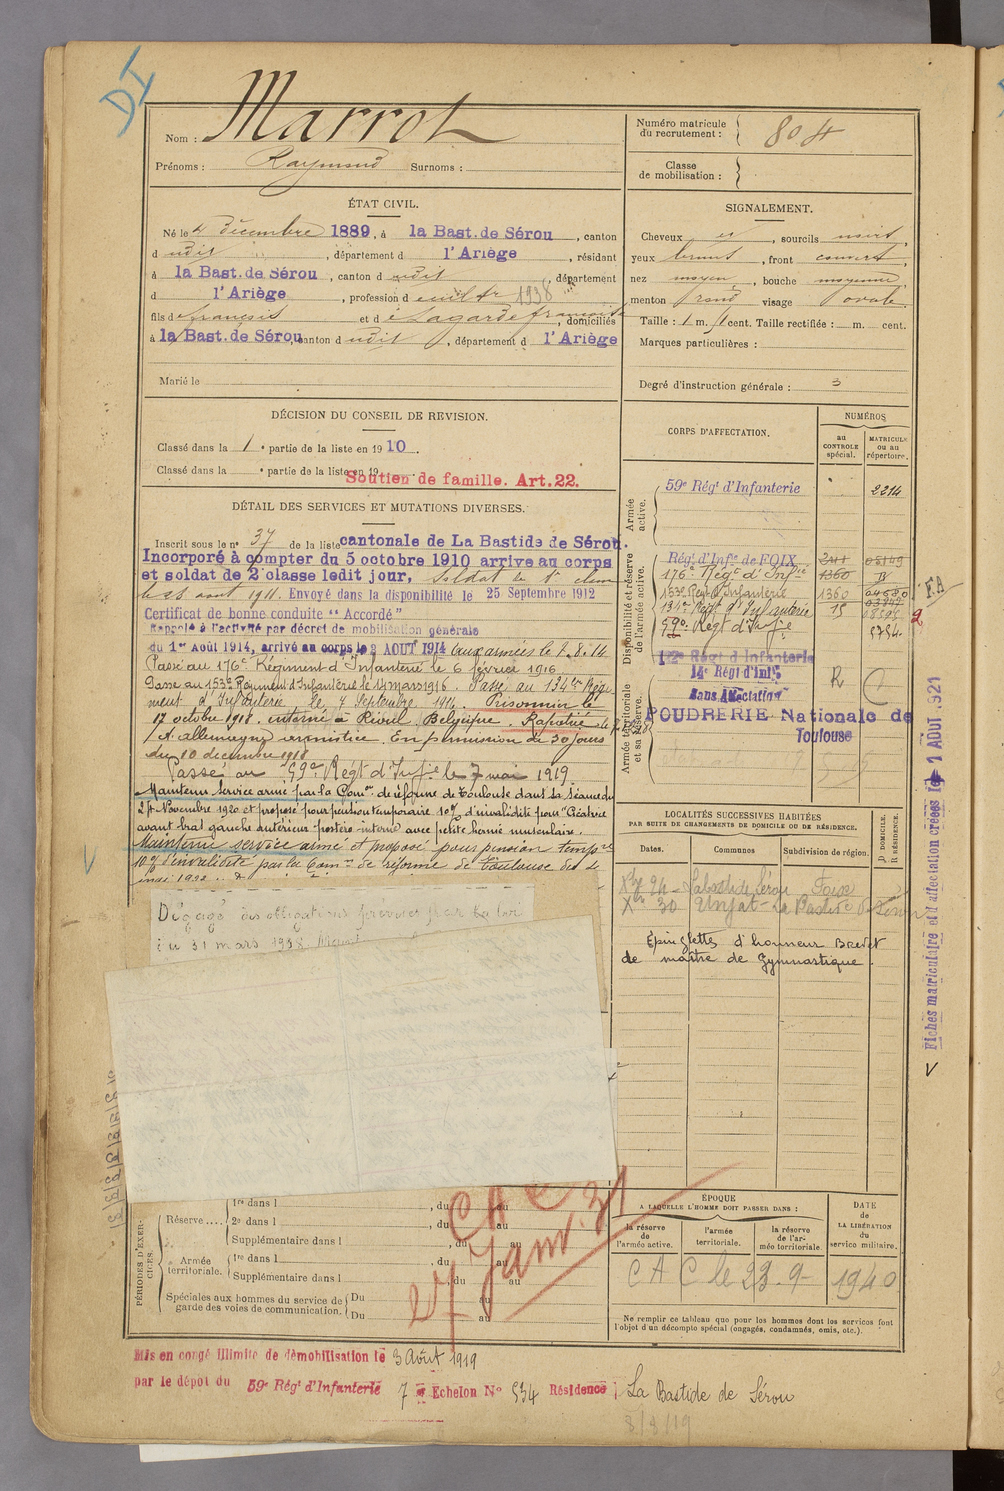 DI
Nom : Marrot
Prénoms : Raymond Surnoms :
Numéro matricule du recrutement : 804
Classe de mobilisation :
ÉTAT CIVIL.
Né le 4 décembre 1889, à la Bast. de Sérou, canton
d udit, département d l'Ariège, résidant
à la Bast. de Sérou, canton d udit, département
d l'Ariège, profession d cult tr 1938
fils d e françois et d e Lagarde françoise, domiciliés
à la Bast. de Sérou, canton d udit, département d l'Ariège
Marié le
SIGNALEMENT.
Cheveux et, sourcils noirs,
yeux bruns, front couvert,
nez moyen, bouche moyenne,
menton rond visage ovale.
Taille : 1 m. cent. Taille rectifiée : m. cent.
Marques particulières :
Degré d'instruction générale : 3
DÉCISION DU CONSEIL DE REVISION.
Classé dans la 1 e partie de la liste en 1910.
Classé dans la e partie de la liste en 19
Soutien de famille. Art. 22.
DÉTAIL DES SERVICES ET MUTATIONS DIVERSES.
Inscrit sous le n° 37 de la liste cantonale de La Bastide de Sérou.
Incorporé à compter du 5 octobre 1910 arrivé au corps
et soldat de 2e classe ledit jour, Soldat de 1e classe
le 28 aout 1911. Envoyé dans la disponibilité le 25 Septembre 1912
Certificat de bonne conduite "Accordé"
Rappelé à l'activité par décret de mobilisation générale
du 1er Août 1914, arrivé au corps le 3 AOUT 1914 aux armées le 8.8.14
Passé au 176e Régiment d'Infanterie le 6 février 1916
Passé au 153e Régiment d'Infanterie le 14 mars 1916. Passé au 134e Régi
ment d'Infanterie le 7 Septembre 1914. Prisonnier le
17 octobre 1918. interné à Belgique. Rapatrié le
armistice. En permission de 30 jours
du 10 décembre 1918
Passé au 59e Régt d'Infie le 7 mai 1919
Maintenu Service armé par la Comon de réforme de Toulouse dans sa séance du
24 Novembre 1920 et proposé pour pension temporaire 10% d'invalidité pour "Cicatrice
avant bras gauche antérieur postéro interne avec petite hernie musculaire.
Maintenu service armé et proposé pour pension tempre
10% d'invalidité par la Comon de réforme de Toulouse du 4
mai 1922
Dégagé des obligations prévues par la loi
du 31 mars 1928.
CORPS D'AFFECTATION.
NUMÉROS
au CONTROLE spécial.
MATRICULE ou au répertoire.
Armée active.
59e Régt d'Infanterie 2214
Disponibilité et réserve de l'armée active.
Régt d'Infie de FOIX 241 08149
176e Régt d'Infie 1360
153e Régt d'Infanterie 1360
134e Régt d'Infanterie 15
59e Régt d'Infie 5754
Armée territoriale et sa réserve.
172e Régt d'Infanterie
14e Régt d'Infie R C
Sans Affectation
POUDRERIE Nationale de
Toulouse
F.A
2
LOCALITÉS SUCCESSIVES HABITÉES
PAR SUITE DE CHANGEMENTS DE DOMICILE OU DE RÉSIDENCE.
Dates. Communes Subdivision de région. D DOMICILE. R RÉSIDENCE.
24 - Labastide Sérou Foix
X 30 Unjat - La Bastide de Sérou
Épinglettes d'honneur Brevet
de maître de Gymnastique.
Fiches matriculaire et d'affectation créées le 1 AOUT 1921
PÉRIODES D'EXERCICES.
Réserve....
1re dans l , du au
2e dans l , du au
Supplémentaire dans l , du au
Armée territoriale.
1re dans l , du au
Supplémentaire dans l , du au
Spéciales aux hommes du service de garde des voies de communication.
Du au
Du au
27 Janv. 31
ÉPOQUE
A LAQUELLE L'HOMME DOIT PASSER DANS :
la réserve de l'armée active.
l'armée territoriale.
la réserve de l'armée territoriale.
DATE de LA LIBÉRATION du service militaire.
C A C le 23-9- 1940
Ne remplir ce tableau que pour les hommes dont les services font
l'objet d'un décompte spécial (engagés, condamnés, omis, etc.).
Mis en congé illimité de démobilisation le 3 Août 1919
par le dépôt du 59e Régt d'Infanterie 7e Echelon N° 534 Résidence : La Bastide de Sérou
3/8/19